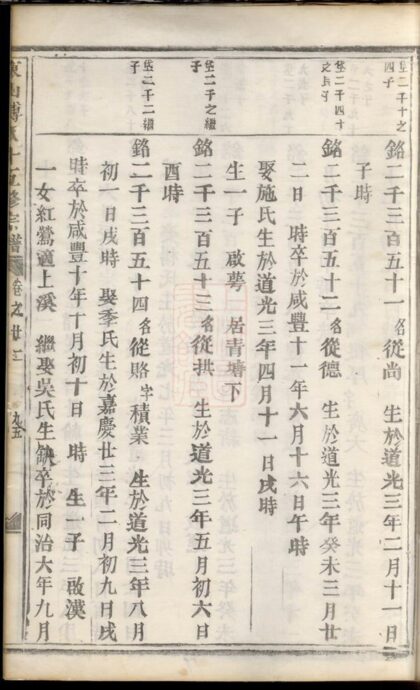 二千十之
四子
銘二千三百五十一名從尚 生於道光三年二月十一日
子時
二千四十
子
銘二千三百五十二名從德 生於道光三年癸未三月廿
二日 時卒於咸豐十一年六月十六日午時
娶施氏生於道光三年四月十一日戌時
生一子 啟夢 居青塘下
二千之繼
子
銘二千三百五十三名從拱 生於道光三年五月初六日
酉時
二千二繼
子
銘二千三百五十四名從賂字積業 生於道光三年八月
初一日戌時 娶季氏生於嘉慶廿三年二月初九日戌
時卒於咸豐十年十月初十日 時 生一子 啟漢
一女紅鶯適上溪 繼娶吳氏生缺卒於同治六年九月
東山傅氏十五修宗譜 卷之廿二 九五